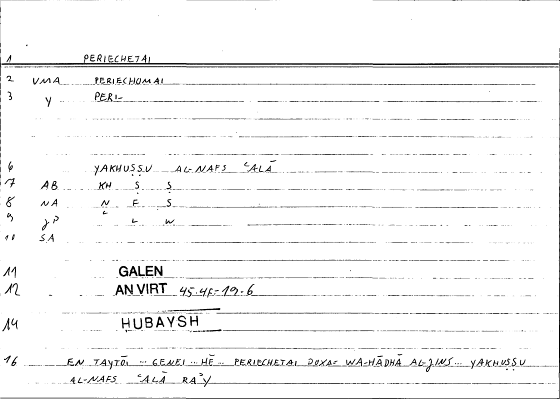 1 PERIECHETAI
2 VMA PERIECHOMAI
3 Y PERI-
6 YAKHUṢṢU AL-NAFS ʿALĀ
7 AB KH Ṣ Ṣ
8 NA N F S
9 JP ʿ L W
10 SA
11 GALEN
12 AN VIRT 45.4F-19.6
14 HUBAYSH
16 EN TAYTŌI ... GENEI ... HĒ ... PERIECHETAI DOXA= WA-HĀDHĀ AL-JINS ... YAKHUṢṢU
AL-NAFS ʿALĀ RAʾY